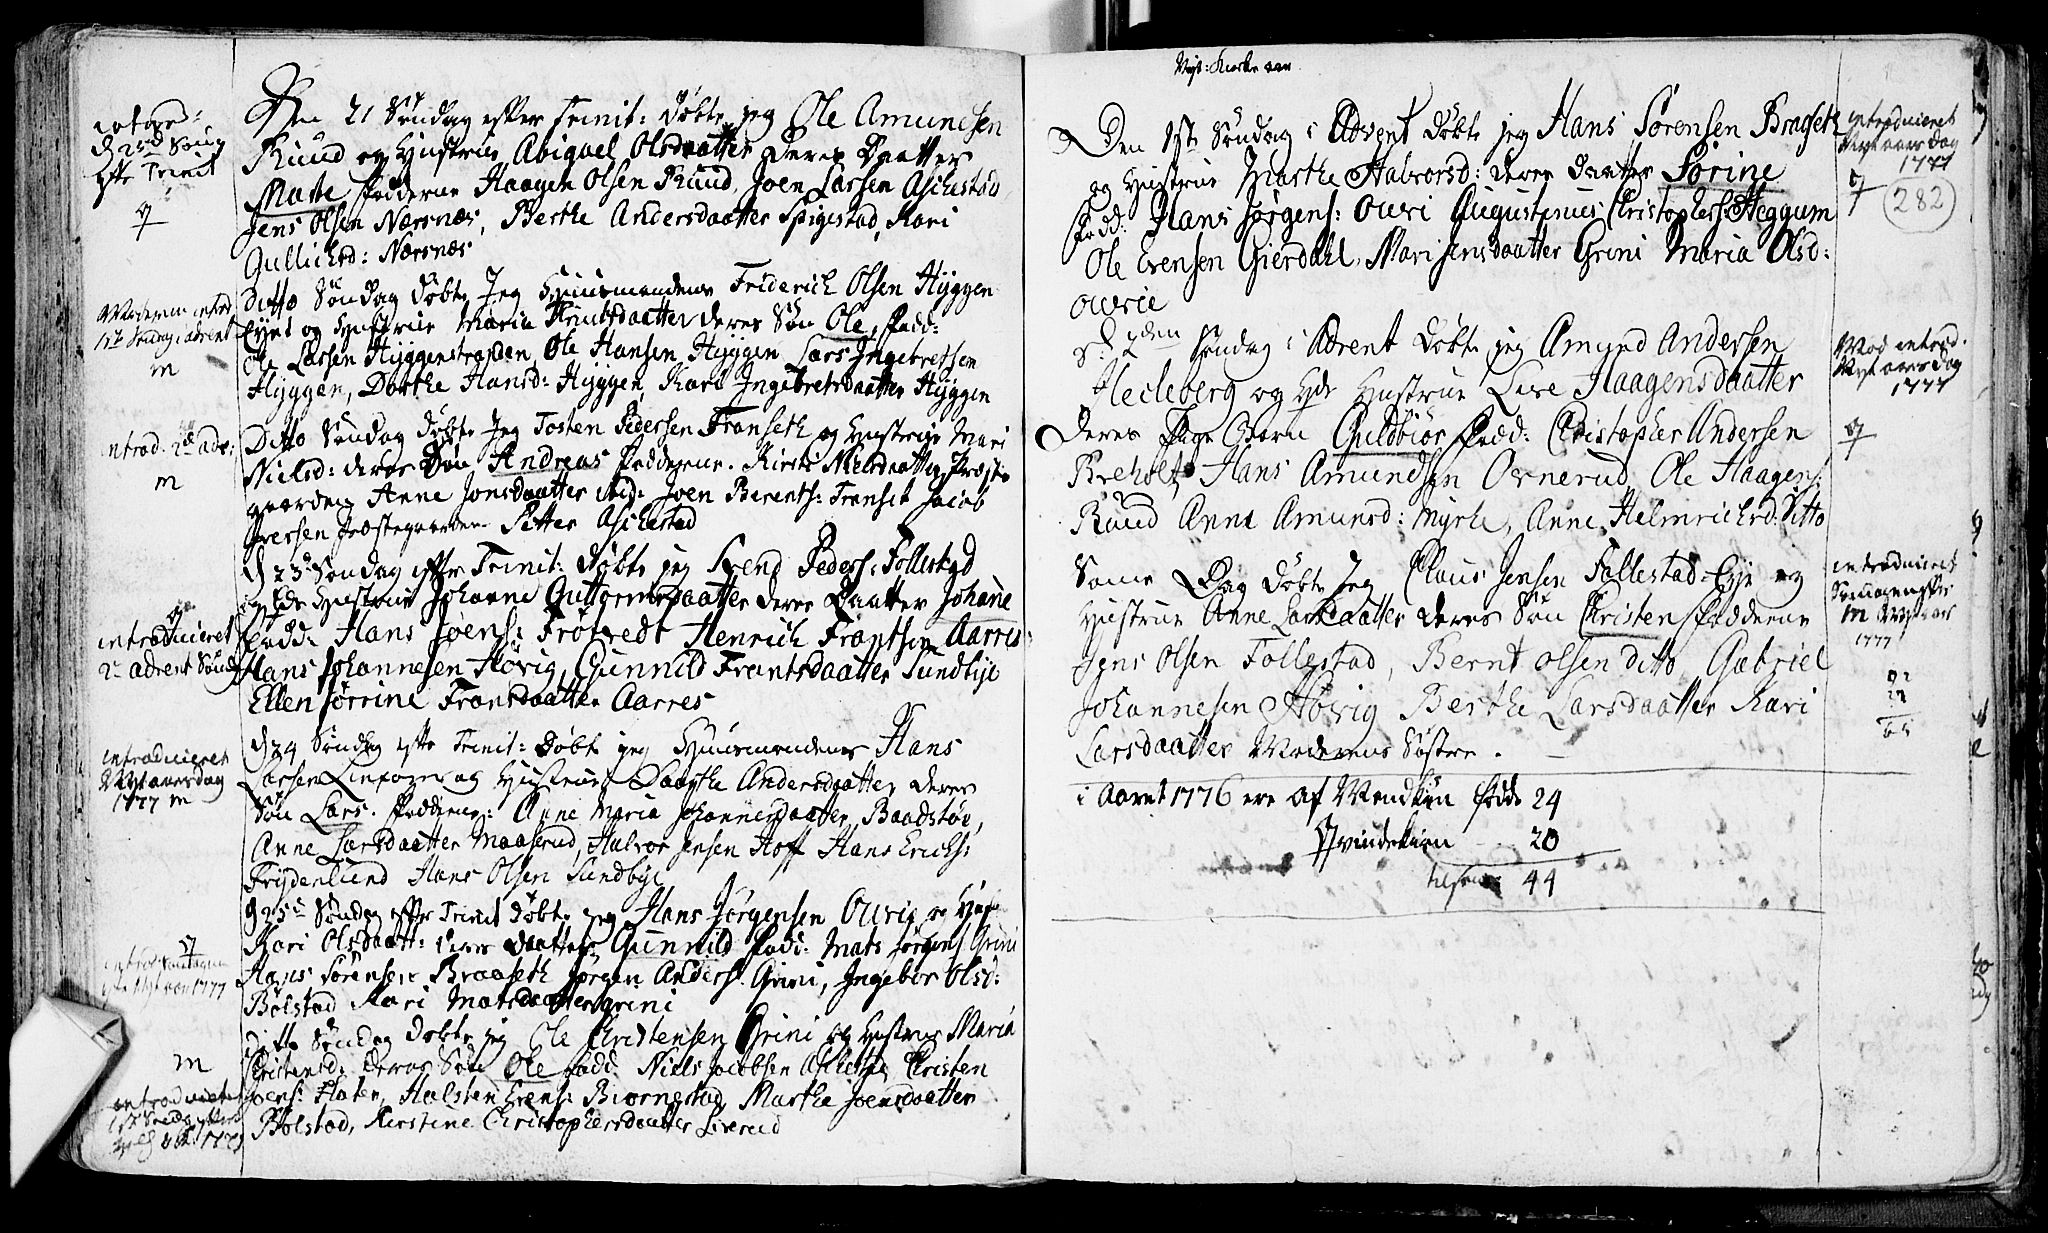 introd:
d 22d Søndag
efter Trinit
q
Den 21 Søndag efter Trinit: døbte jeg Ole Amundsen
Ruud og Hustrue Abigael Olsdaatter deres Daatter
Marte Fadderne Haagen Olsen Ruud, Joen Larsen Aschestad
Jens Olsen Nærsnæs, Berthe Andersdaatter Spigestad, Kari
Gullichsd: Nærsnæs
Moderen introd
1ste Søndag i advent
m
Ditto Søndag døbte Jeg Huusmandens Friderich Olsen Hyggen
Eyet og Hustrue Maria Knutsdaatter deres Søn Ole, Fadd:
Ole Larsen Hyggenstranden, Ole Hansen Hyggen Lars Ingebretsen
Hyggen, Dorthe Hansd: Hyggen, Kari Ingebretsdaatter Hyggen
introd. 2de adv:
m
Ditto Søndag døbte Jeg Tosten Pedersen Franseth og Hustrue Mari
Nielsd: deres Søn Andreas Fadderne. Kirsti Nielsdaatter Præste
gaarden Anne Jonsdaatter ibid: Joen Berents: Franset Jacob
Iversen Præstegaarden Petter Aschestad
q
introduceret
2de advent Søndag
d 23de Søndag efter Trinit: døbte jeg Svend Peders: Follestad
og Hustrue Johanne Guttormsdaatter deres Daatter Johanne
Fadd: Hans Joens: Frøtvedt Henrich Frantsen Aarres
Hans Johannesen Høvig, Gunnild Frantsdaatter Sundbye
Ellen Sørrine Frantsdaatter Aarres
introduceret
Nytaarsdag
1777 m
d 24 Søndag efter Trinit: døbte jeg Huusmandens Hans
Larsen og Hustrue Daarthe Andersdaatter deres
Søn Lars. Fadderne: Anne Maria Johannesdaatter, Baadstøe,
Anne Larsdaatter Maaserud, Halvor Jensen Hoff Hans Erichs:
Frydenlund Hans Olsen Sundbye
q
introd: Søndagen
efter Nytaar 1777
d 25de Søndag efter Trinit døbte jeg Hans Jørgensen Ourie og Hust
Kari Olsdaatt: deres daatter Gunnild Fadd: Mats Jørgens: Grini
Hans Sørensen Braaseth Jørgen Anders: Grini, Ingebor Olsd:
Bølstad Kari Matsdaatter Grini
m
introduceret
Ditto Søndag døbte jeg Ole Christensen Grini og Hustrue Maria
Christensd: deres Søn Ole Fadd: Niels Jacobsen Christen
Joens: Halsten Evens: Biørnestad Marthe Joensdaatter
Bølstad, Kirstine Christophersdaatter Liverud
Nyt: Kirke aar
Den 1ste Søndag i Advent døbte jeg Hans Sørensen Braaseth
og Hustrue Marthe Halvorsd: deres daatter Sørine
Fadd: Hans Jørgens: Ouri Augustinus Christophers: Heggum
Ole Evensen Gierdahl, Mari Jensdaatter Grini Maria Olsd:
Ourie
introduceret
Nytaarsdag
1777
q
282
d: 2den Søndag i Advent døbte jeg Amund Andersen
Hecleberg og Hustrue Live Haagensdaatter
deres Pige Barn Guldbiør Fadd: Christopher Andersen
Breholt Hans Amundsen Ovnerud, Ole Haagens:
Ruud Anne Amunsd: Myrhe, Anne Helmrichsd: Ditto
Mod introd.
Nytaarsdag
1777
q
Same Dag døbte Jeg Claus Jensen Follestad-Eye og
Hustrue Anne Larsdaatter deres Søn Christen Fadderne
Jens Olsen Follestad, Bernt Olsen ditto Gabriel
Johannesen Høvig Berthe Larsdaatter Kari
Larsdaatter Moderens Søstre.
introduceret
Søndagen efter
m Nytaar
1777
i Aaret 1776 ere af Mandkiøn fødde 24
Qvindekiøn 20
tilsam: 44